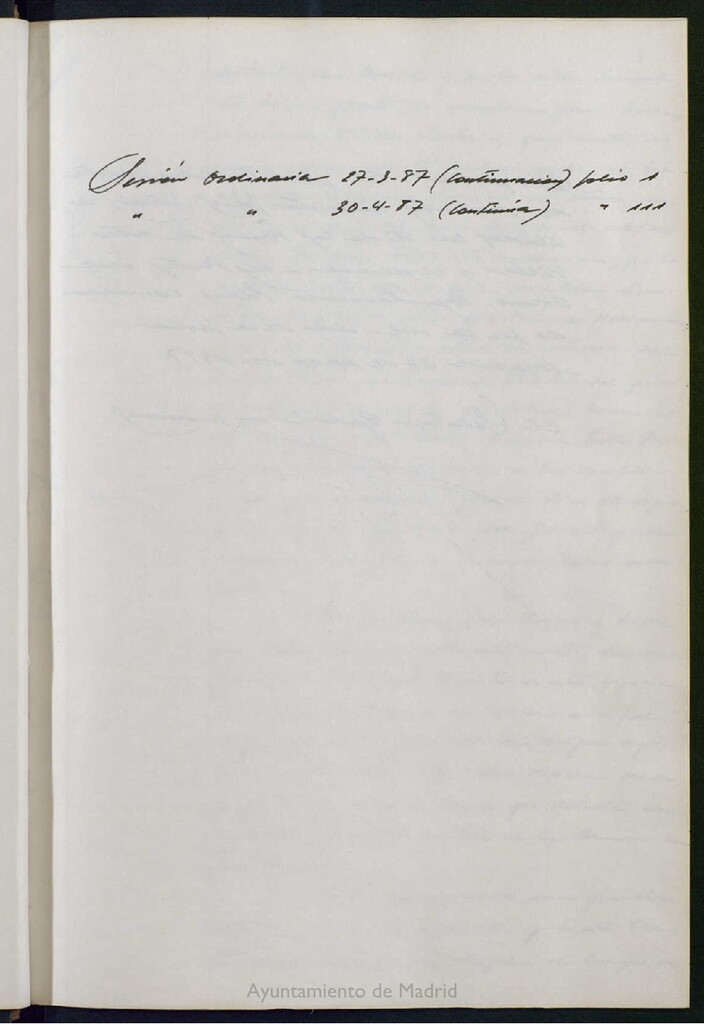 Sesión Ordinaria 27-3-87 (Continuación) folio 1
" " 30-4-87 (Continúa) " 111
Ayuntamiento de Madrid